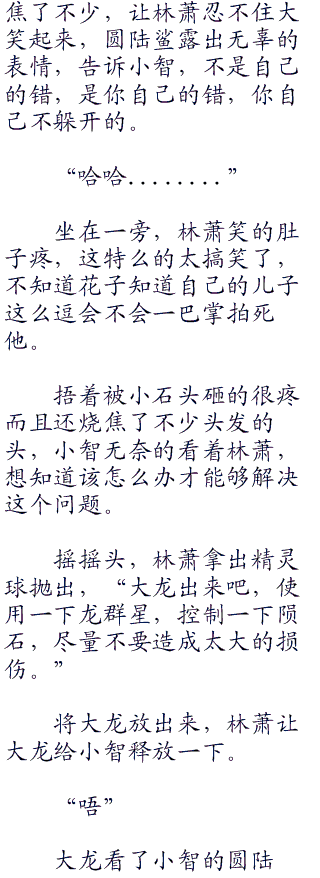 焦了不少，让林萧忍不住大
笑起来，圆陆鲨露出无辜的
表情，告诉小智，不是自己
的错，是你自己的错，你自
己不躲开的。
“哈哈........”
坐在一旁，林萧笑的肚
子疼，这特么的太搞笑了，
不知道花子知道自己的儿子
这么逗会不会一巴掌拍死
他。
捂着被小石头砸的很疼
而且还烧焦了不少头发的
头，小智无奈的看着林萧，
想知道该怎么办才能够解决
这个问题。
摇摇头，林萧拿出精灵
球抛出，“大龙出来吧，使
用一下龙群星，控制一下陨
石，尽量不要造成太大的损
伤。”
将大龙放出来，林萧让
大龙给小智释放一下。
“唔”
大龙看了小智的圆陆